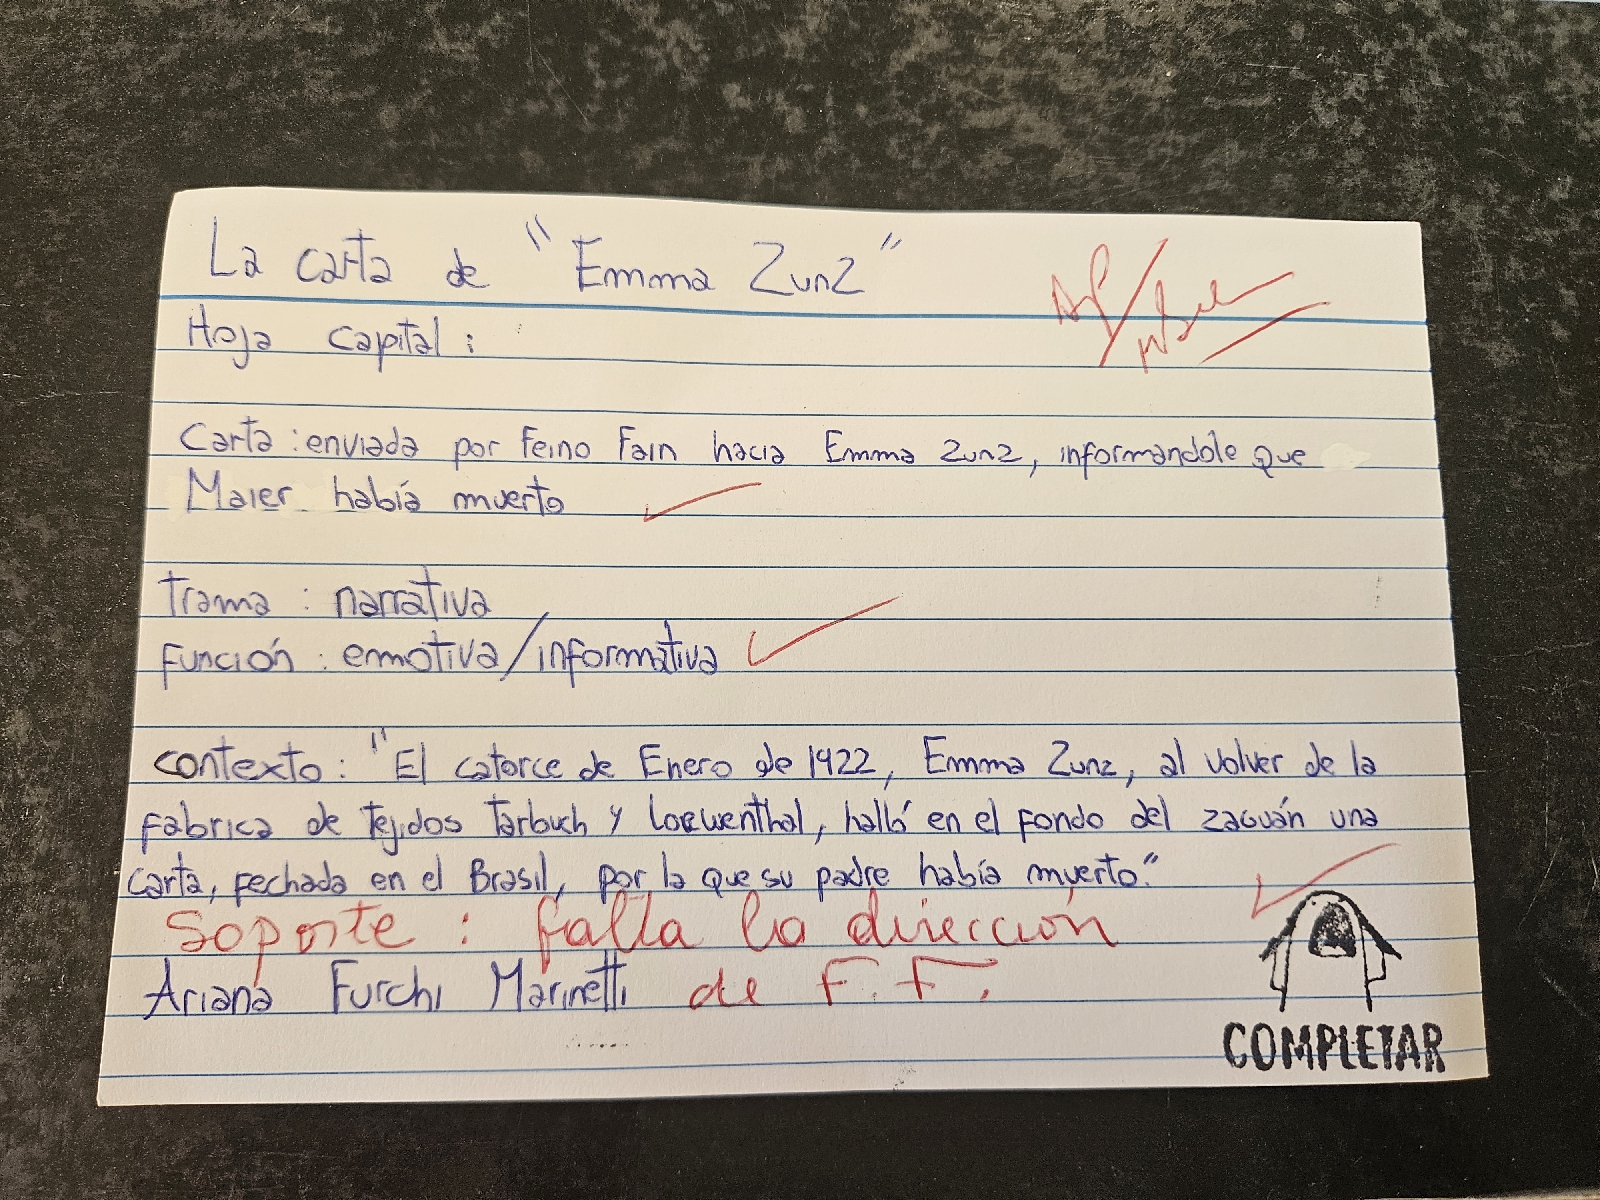 La carta de "Emma Zunz"
Hoja capital:
Carta: enviada por Feino Fain hacia Emma Zunz, informandole que
Maier había muerto
Trama: narrativa
Función: emotiva/informativa
contexto: "El catorce de Enero de 1922, Emma Zunz, al volver de la
fabrica de tejidos Tarbuch y Loewenthal, halló en el fondo del zaguán una
carta, fechada en el Brasil, por la que su padre había muerto."
Soporte: falta la dirección
Ariana Furchi Marinetti de F.F.
COMPLETAR